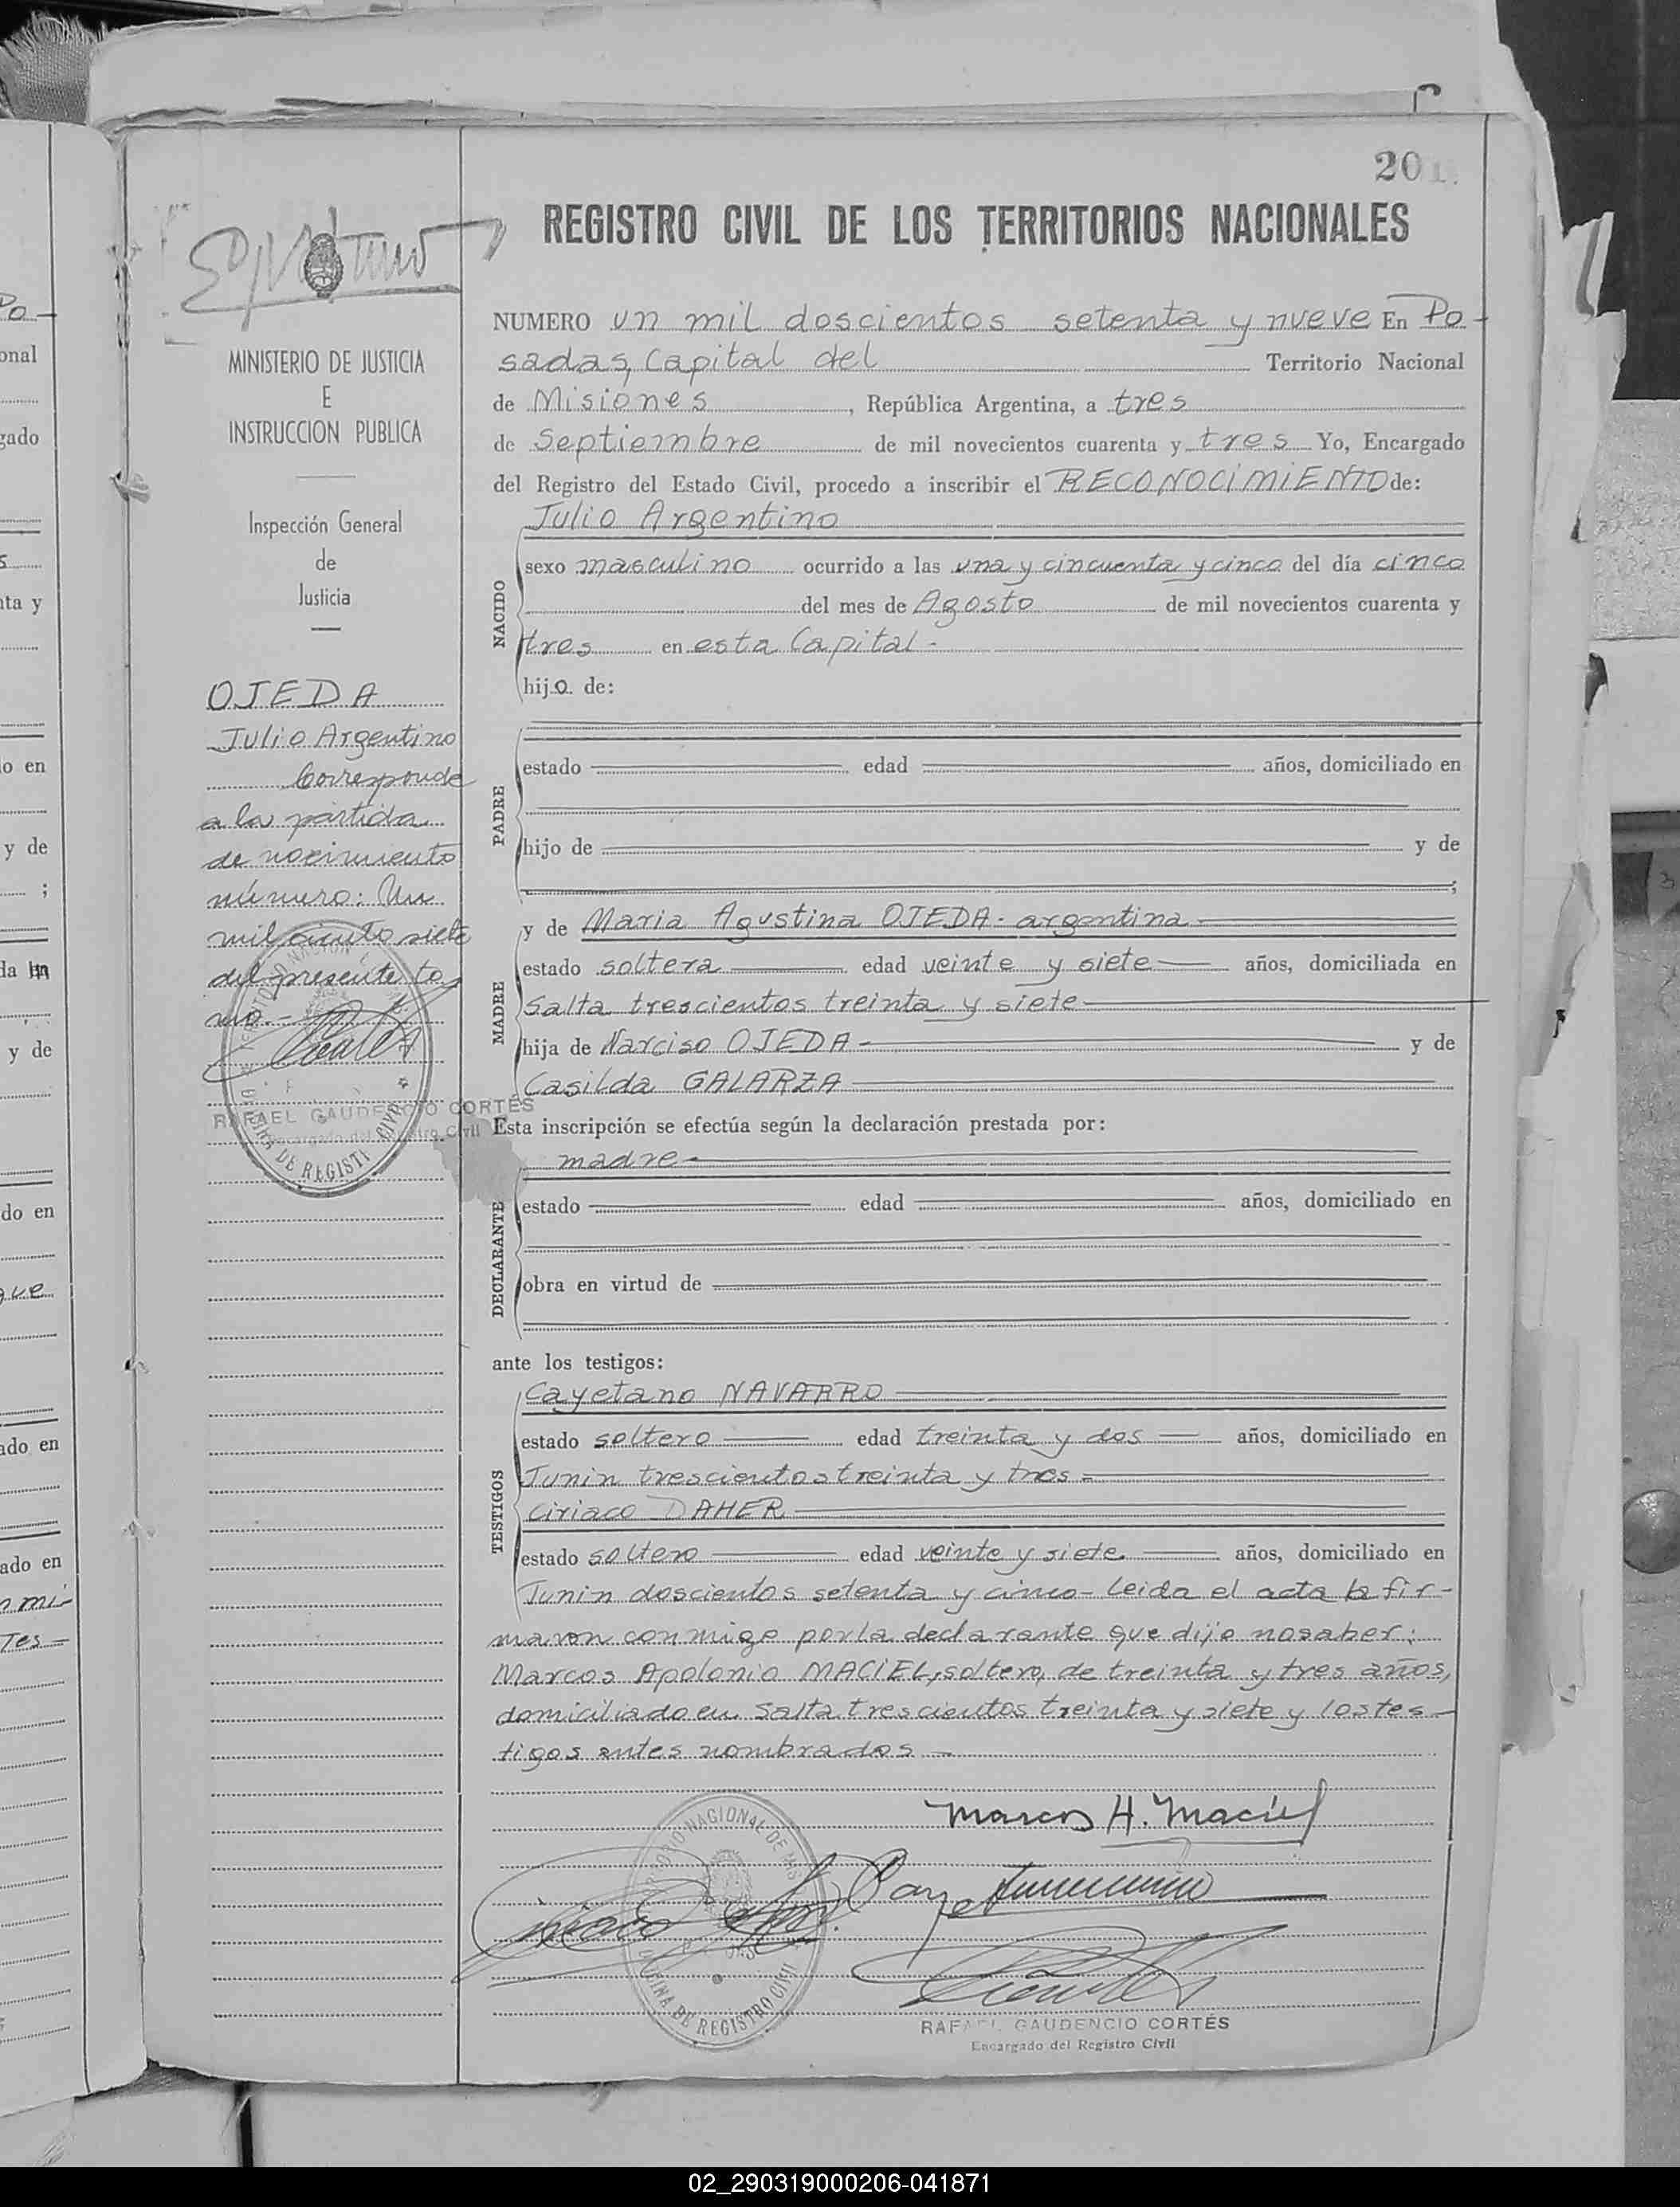 201.
REGISTRO CIVIL DE LOS TERRITORIOS NACIONALES
MINISTERIO DE JUSTICIA
E
INSTRUCCION PUBLICA
Inspección General
de
Justicia
OJEDA
Julio Argentino
Corresponde
a la partida
de nacimiento
número: Un
mil ciento siete
del presente to
mo.-
RAFAEL GAUDENCIO CORTÉS
Encargado del Registro Civil
NUMERO un mil doscientos setenta y nueve En Po-
sadas, Capital del Territorio Nacional
de Misiones, República Argentina, a tres
de Septiembre de mil novecientos cuarenta y tres Yo, Encargado
del Registro del Estado Civil, procedo a inscribir el RECONOCIMIENTO de:
Julio Argentino
NACIDO
sexo masculino ocurrido a las una y cincuenta y cinco del día cinco
del mes de Agosto de mil novecientos cuarenta y
tres en esta Capital-
hijo de:
PADRE
estado edad años, domiciliado en
hijo de y de
;
MADRE
y de Maria Agustina OJEDA- argentina
estado soltera edad veinte y siete años, domiciliada en
Salta trescientos treinta y siete
hija de Narciso OJEDA y de
Casilda GALARZA
Esta inscripción se efectúa según la declaración prestada por:
madre
DECLARANTE
estado edad años, domiciliado en
obra en virtud de
ante los testigos:
TESTIGOS
Cayetano NAVARRO
estado soltero edad treinta y dos años, domiciliado en
Junin trescientos treinta y tres
Ciriaco DAHER
estado soltero edad veinte y siete años, domiciliado en
Junin doscientos setenta y cinco- Leida el acta la fir-
maron conmigo por la declarante que dijo no saber:
Marcos Apolonio MACIEL, soltero, de treinta y tres años,
domiciliado en Salta trescientos treinta y siete y los tes-
tigos antes nombrados
Marcos A. Maciel
OFICINA DE REGISTRO CIVIL
RAFAEL GAUDENCIO CORTÉS
Encargado del Registro Civil
02_290319000206-041871